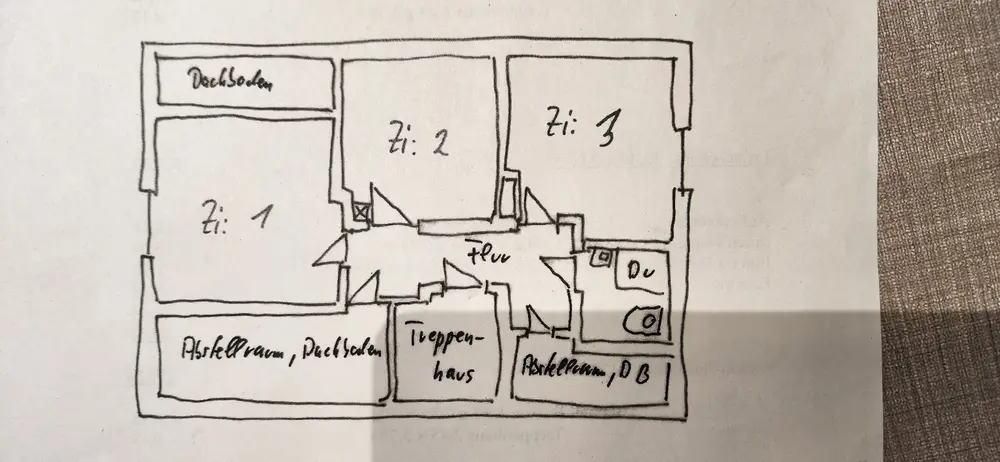 Dachboden
Zi: 1
Zi: 2
Zi: 3
Flur
Du
Abstellraum, Dachboden
Treppen-
haus
Abstellraum, DB